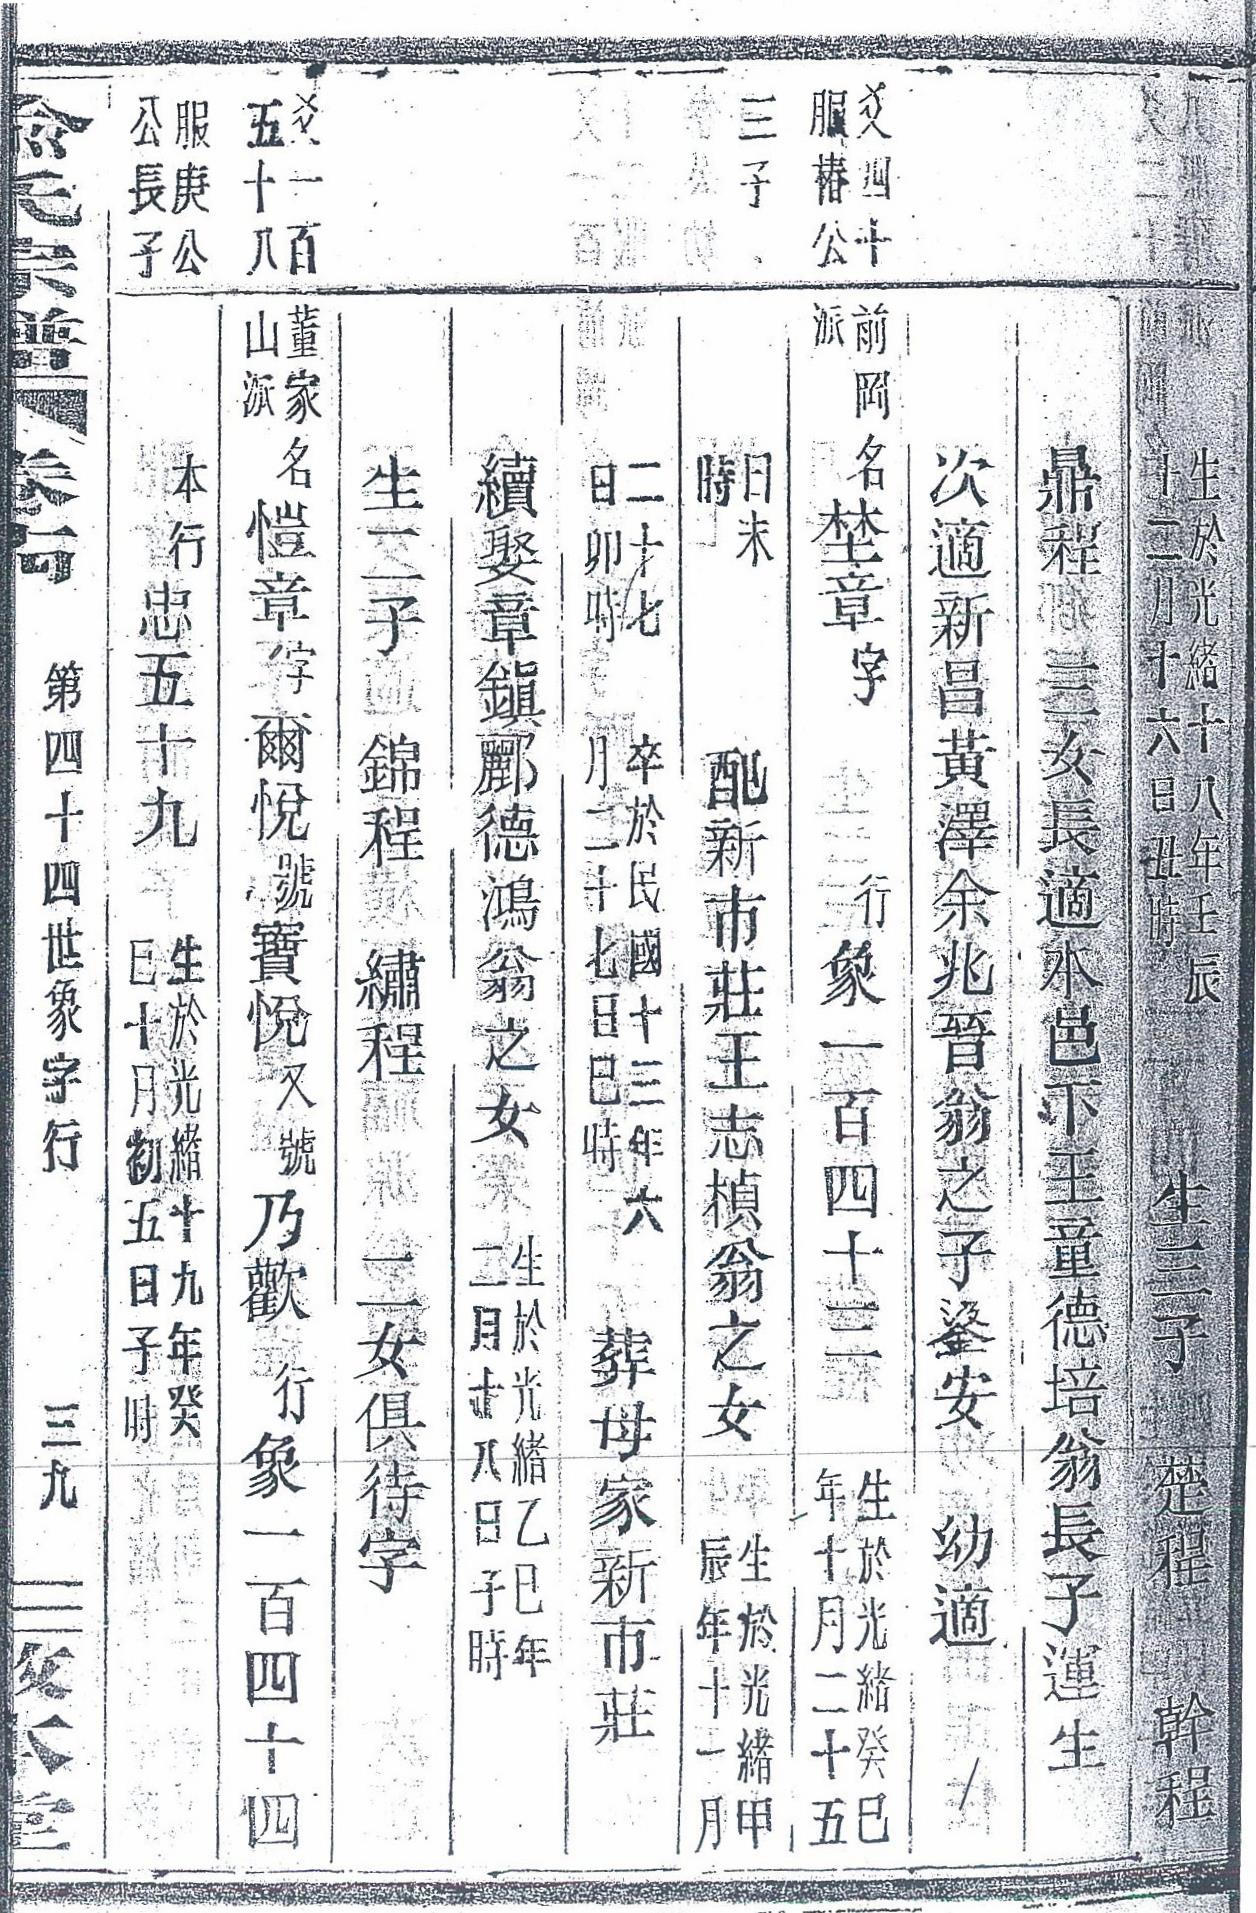 生於光緒十八年壬辰
十二月十六日丑時
生三子 楚程 幹程
鼎程 三女長適本邑下王童德培翁長子運生
次適新昌黃澤余兆晉翁之子鋆安 幼適
爻四十
服椿公
三子
前岡
派
名埜章字 行象一百四十三
生於光緒癸巳
年十月二十五
日未
時
配新市莊王志楨翁之女
生於光緒甲
辰年十一月
二十七
日卯時
卒於民國十三年六
月二十七日巳時
葬母家新市莊
續娶章鎭酈德鴻翁之女
生於光緒乙巳年
二月十八日子時
生二子 錦程 繡程 二女俱待字
爻一百
五十八
服庚公
公長子
董家
山派
名愷章字爾悅號寶悅又號乃歡行象一百四十四
本行忠五十九
生於光緒十九年癸
巳十月初五日子時
氏宗譜
第四十四世象字行
三九